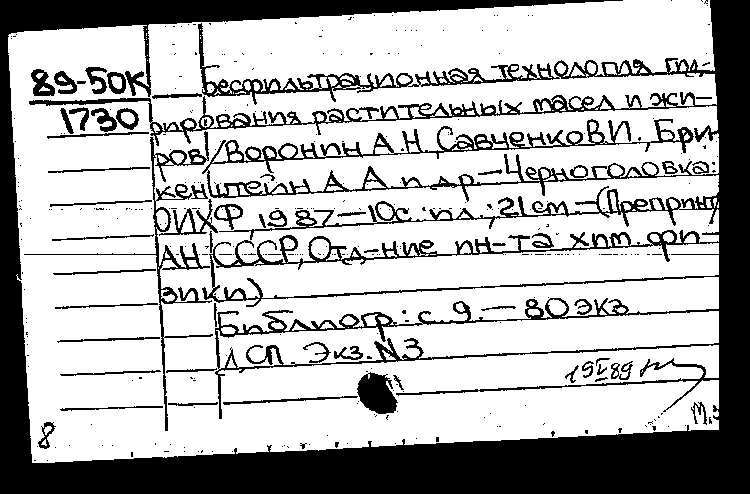 89-50К Бесфильтрационная технология гид-
1730 рирования растительных масел и жи-
ров/Воронин А.Н, Савченко В.И., Бри
кенштейн А А и др.—Черноголовка:
ОИХФ, 1987.—10с.:ил.; 21см.—(Препринт/
АН СССР, Отд-ние ин-та хим. фи-
зики).
Библиогр.: с. 9.— 80 экз.
1, СП. Экз. N3
19V89
8 М,з